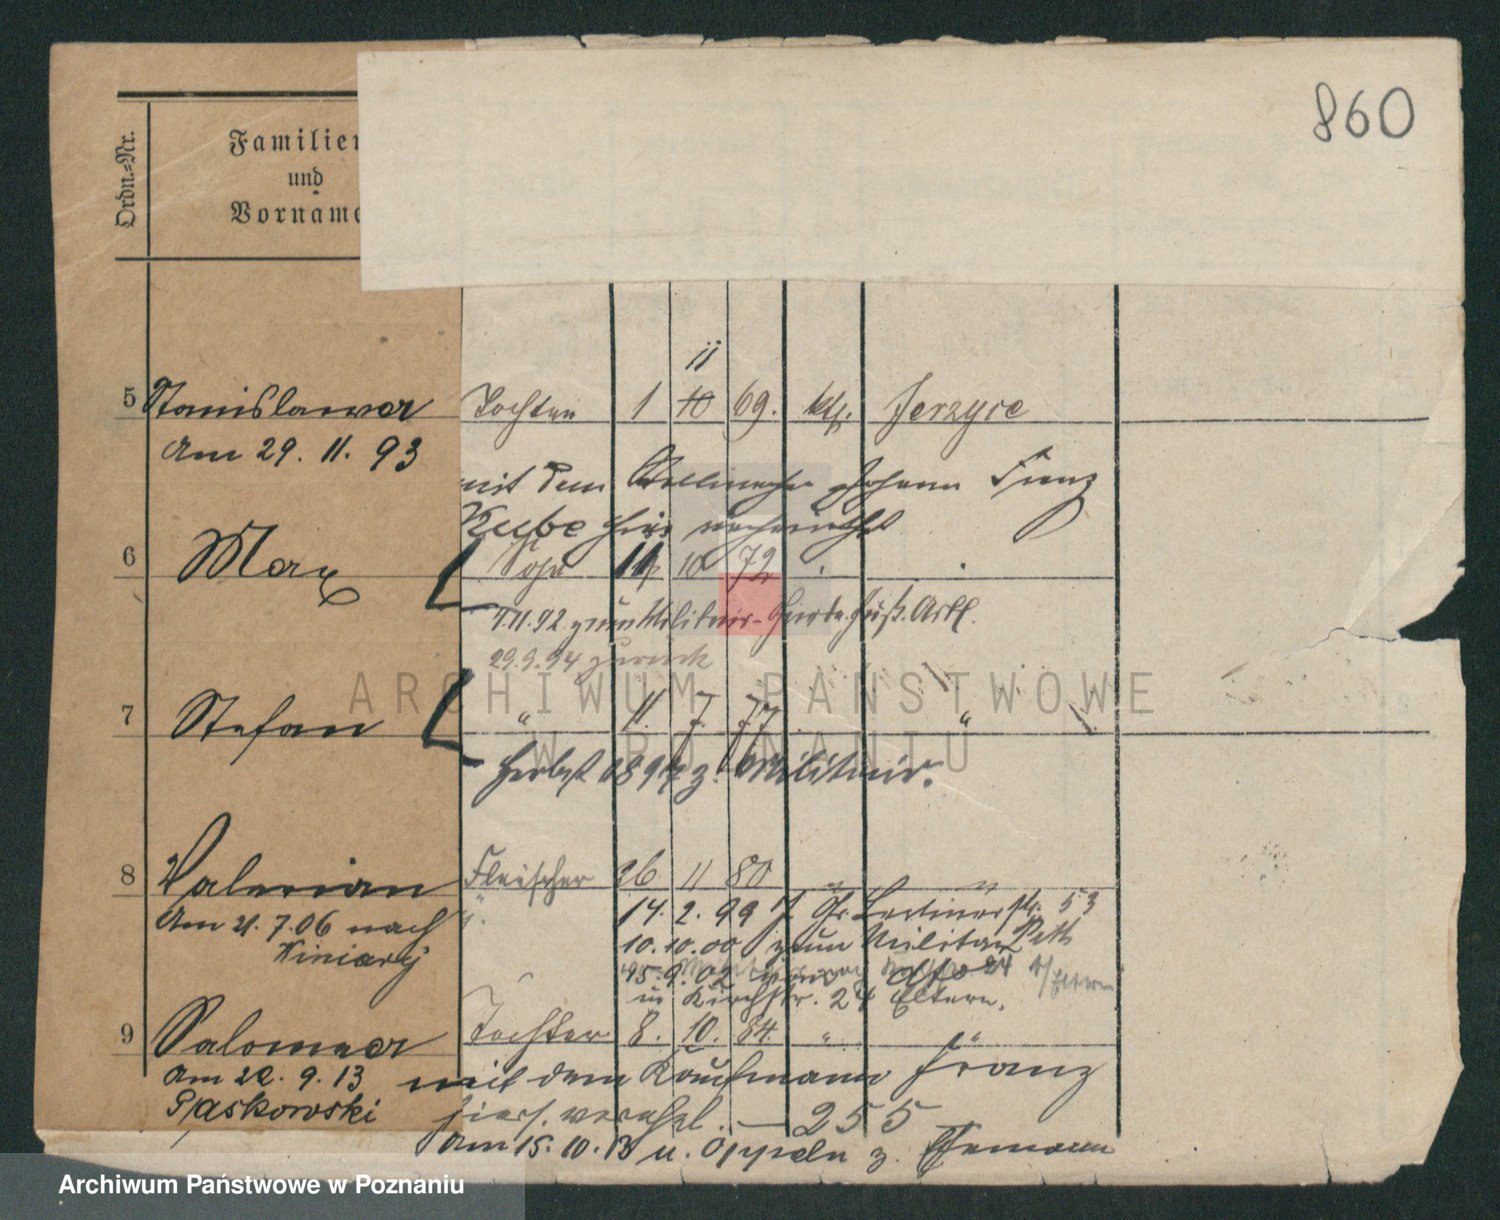 860
Ordn.=Nr.
Familien
und
Vorname
11
5 Stanislawa Tochter 1 10 69. kth. Jerzyce
Am 29. 11. 93
mit dem Stellmacher Johann Franz
Kube hier verheirathet
6 Max Sohn 11 10 72
7.11.92 zum Militair-Garde Fuß. Artl.
29.9.94 zurück
7 Stefan " 11. 7. 77 "
Herbst 1897 z. Militair.
8 Valerian Fleischer 26 11 80 " "
Am 21.7.06 nach
Winiary
14. 2. 99 Gr. Berlinerstr. 53
10.10.00 zum Militär
in Kirchstr. 24 Eltern.
9 Salomea Tochter 8. 10. 84. " "
Am 22. 9. 13 mit dem Kaufmann Franz
Paskowski hiers. verehel. — 255
Am 15. 10. 13 n. Oppeln z. Ehemann
ARCHIWUM PAŃSTWOWE
W POZNANIU
Archiwum Państwowe w Poznaniu